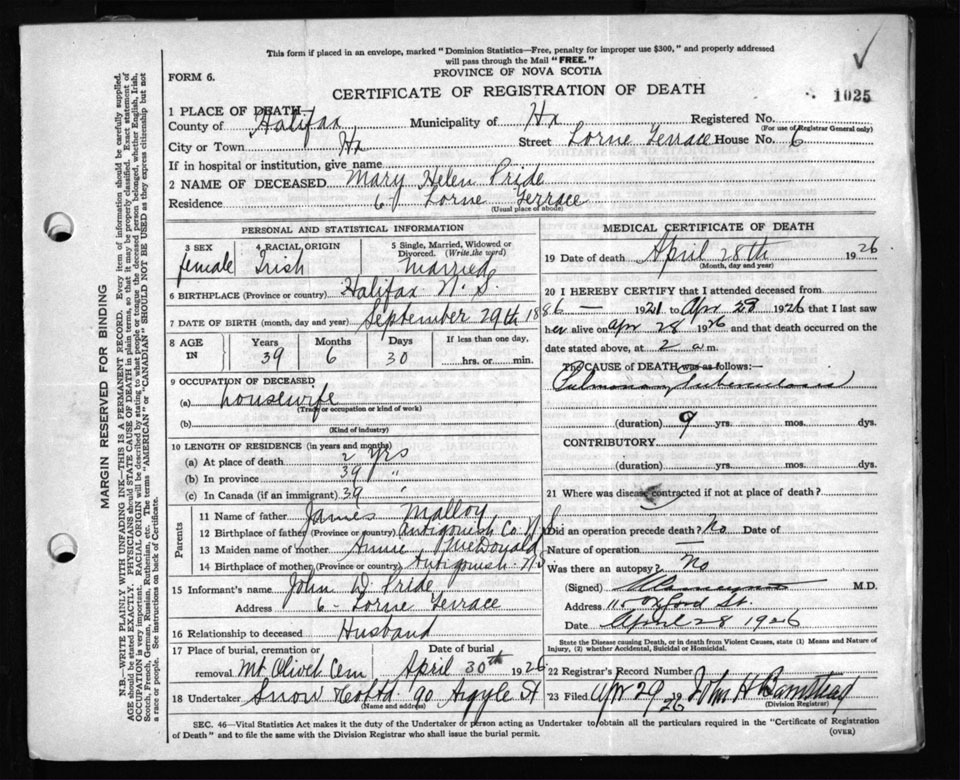 This form if placed in an envelope, marked "Dominion Statistics—Free, penalty for improper use $300," and properly addressed
will pass through the Mail "FREE."
PROVINCE OF NOVA SCOTIA
FORM 6.
CERTIFICATE OF REGISTRATION OF DEATH
1025
1 PLACE OF DEATH
County of Halifax Municipality of Hx Registered No.
(For use of Registrar General only)
City or Town Hx Street Lorne Terrace House No. 6
If in hospital or institution, give name
2 NAME OF DECEASED Mary Helen Pride
Residence 6 Lorne Terrace
(Usual place of abode)
PERSONAL AND STATISTICAL INFORMATION
3 SEX 4 RACIAL ORIGIN 5 Single, Married, Widowed or
Divorced. (Write the word)
female Irish Married
6 BIRTHPLACE (Province or country) Halifax N. S.
7 DATE OF BIRTH (month, day and year) September 29th 1886
8 AGE IN Years Months Days If less than one day,
39 6 30 hrs. or min.
9 OCCUPATION OF DECEASED
(a) housewife
(Trade or occupation or kind of work)
(b)
(Kind of industry)
10 LENGTH OF RESIDENCE (in years and months)
(a) At place of death 2 yrs
(b) In province 39 "
(c) In Canada (if an immigrant) 39 "
Parents
11 Name of father James Malloy
12 Birthplace of father (Province or country) Antigonish Co. N S
13 Maiden name of mother Annie McDonald
14 Birthplace of mother (Province or country) Antigonish N S
15 Informant's name John D. Pride
Address 6 - Lorne Terrace
16 Relationship to deceased Husband
17 Place of burial, cremation or Date of burial
removal Mt Olivet Cem April 30th 1926
18 Undertaker Snow & Co Ltd 90 Argyle St
(Name and address)
MEDICAL CERTIFICATE OF DEATH
19 Date of death April 28th 1926
(Month, day and year)
20 I HEREBY CERTIFY that I attended deceased from
— 1921 to Apr 28 1926 that I last saw
her alive on Apr 28 1926 and that death occurred on the
date stated above, at 2 a m.
The CAUSE of DEATH was as follows:—
Pulmonary Tuberculosis
(duration) 9 yrs. mos. dys.
CONTRIBUTORY
(duration) yrs. mos. dys.
21 Where was disease contracted if not at place of death?
Did an operation precede death? No Date of
Nature of operation —
Was there an autopsy? No
(Signed) M.D.
Address 110 Oxford St.
Date April 28 1926
State the Disease causing Death, or in death from Violent Causes, state (1) Means and Nature of
Injury, (2) whether Accidental, Suicidal or Homicidal.
22 Registrar's Record Number
23 Filed Apr 29 1926 John H Barnstead
(Division Registrar)
SEC. 46—Vital Statistics Act makes it the duty of the Undertaker or person acting as Undertaker to obtain all the particulars required in the "Certificate of Registration
of Death" and to file the same with the Division Registrar who shall issue the burial permit.
(OVER)
MARGIN RESERVED FOR BINDING
N.B.—WRITE PLAINLY WITH UNFADING INK—THIS IS A PERMANENT RECORD. Every item of information should be carefully supplied.
AGE should be stated EXACTLY. PHYSICIANS should STATE CAUSE OF DEATH in plain terms, so that it may be properly classified. Exact statement of
OCCUPATION is very important. RACIAL ORIGIN will be described by stating to what people or tongue the deceased person belonged, whether English, Irish,
Scotch, French, German, Russian, Ruthenian, etc. The terms "AMERICAN" or "CANADIAN" SHOULD NOT BE USED as they express citizenship but not
a race or people. See instructions on back of Certificate.